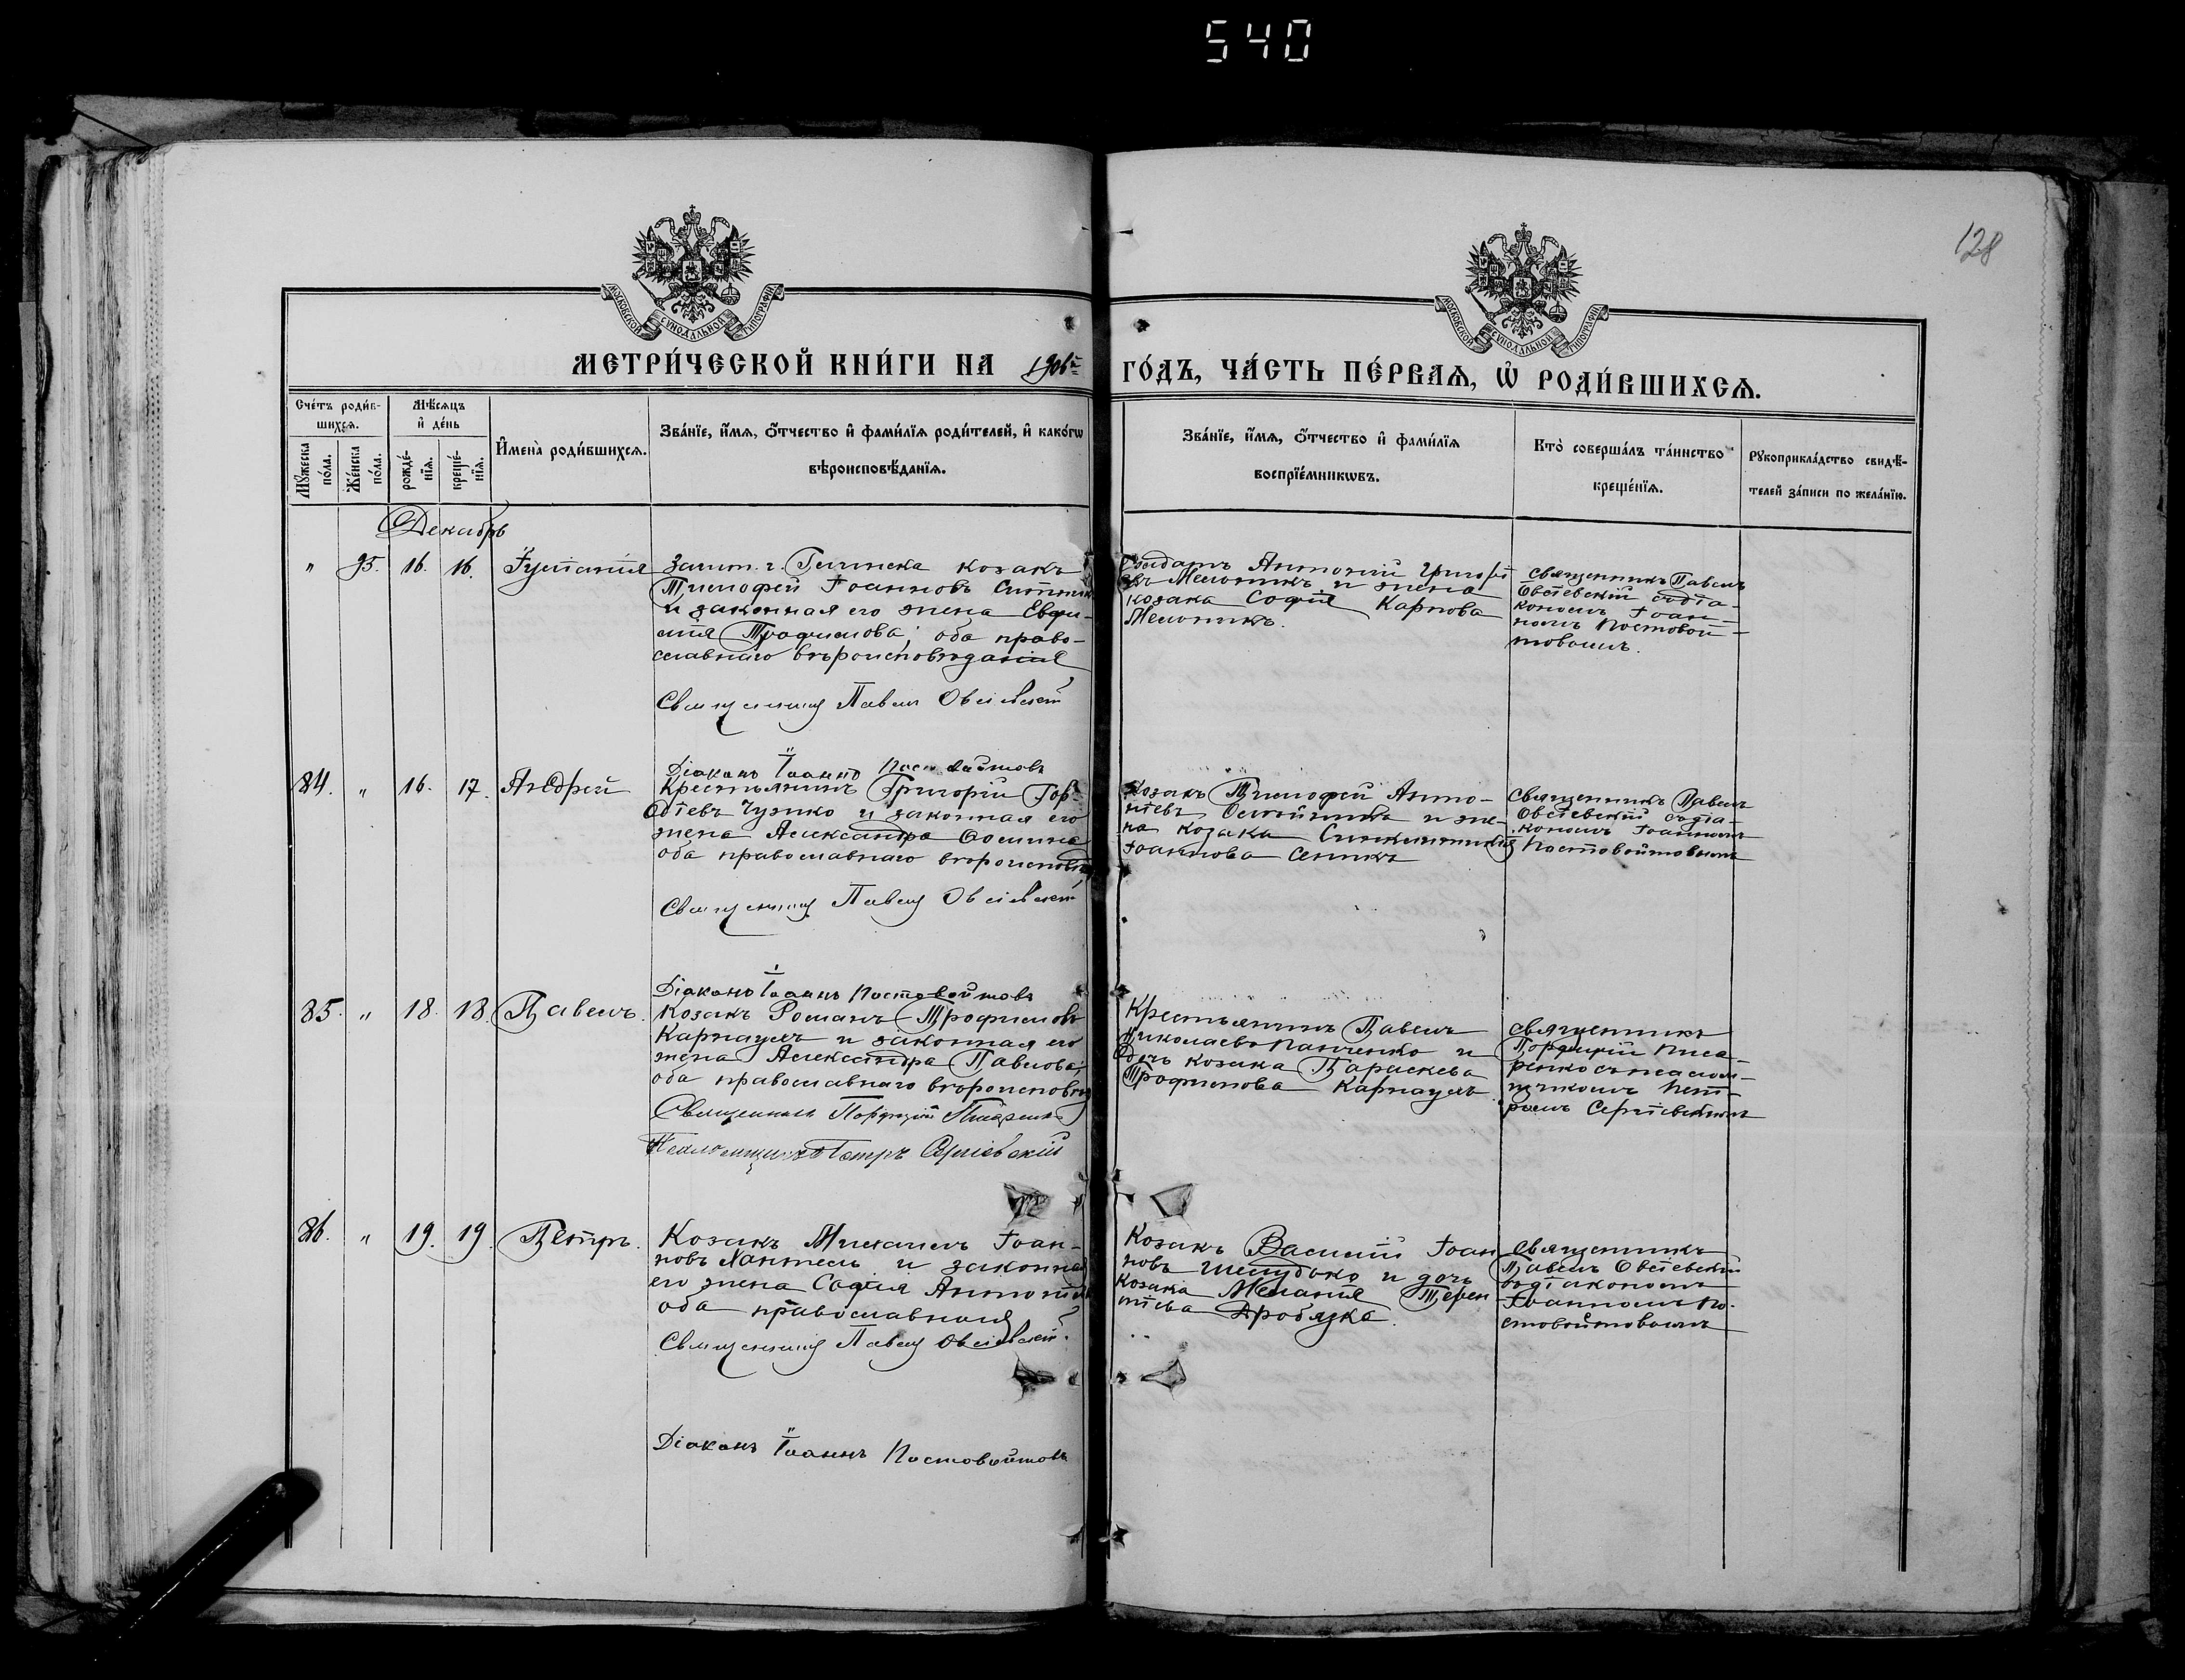 540
128
МОСКОВСКОЙ СѴНОДАЛЬНОЙ ТИПОГРАФІИ
МОСКОВСКОЙ СѴНОДАЛЬНОЙ ТИПОГРАФІИ
МЕТРИ́ЧЕСКОЙ КНИ́ГИ НА 1906й ГО́ДЪ, ЧА́СТЬ ПЕ́РВАѦ, Ѽ РОДИ́ВШИХСѦ.
Сче́тъ роди́в-
шихсѧ.
Мꙋ́жеска по́ла.
Же́нска по́ла.
Мѣ́сѧцъ
и҆ де́нь
рожде́-
нїѧ.
креще́-
нїѧ.
И҆мена̀ роди́вшихсѧ.
Зва́нїе, и҆́мѧ, ѻ҆́тчество и҆ фами́лїѧ роди́телей, и҆ како́гѡ
вѣроисповѣ́данїѧ.
Зва́нїе, и҆́мѧ, ѻ҆́тчество и҆ фами́лїѧ
воспрїе́мникѡвъ.
Кто̀ соверша́лъ та́инство
креще́нїѧ.
Рꙋкоприкла́дство свидѣ́-
телей за́писи по жела́нїю.
Декабрь
" 95. 16. 16.
Зашт. г. Глинска козакъ
Тимофей Іоанновъ
и законная его жена Евфи-
мія Трофимова; оба право-
славнаго вѣроисповѣданія
Священникъ Павелъ Овсіевскій
Діаконъ Іоаннъ Постовойтовъ
Солдатъ Антоній Григорі
евъ Мельникъ и жена
козака Софія Карпова
Мельникъ.
Священникъ Павелъ
Овсіевскій съ діа-
кономъ Іоан-
номъ Постовой-
товымъ.
84. " 16. 17. Андрей
Крестьянинъ Григорій Гор-
діевъ Чупко и законная его
жена Александра Фомина
оба православнаго
Священникъ Павелъ Овсіевскій
Діаконъ Іоаннъ Постовойтовъ
Козакъ Тимофей Анто-
ніевъ и же-
на козака Синклитикія
Іоаннова Сеникъ
Священникъ Павелъ
Овсіевскій съ діа-
кономъ Іоанномъ
Постовойтовымъ
85. " 18. 18. Павелъ.
Козакъ Романъ Трофимовъ
Карнаухъ и законная его
жена Александра Павлова;
оба православнаго
Священникъ Порфирій Писаренко
Псаломщикъ Петръ Сергіевскій
Крестьянинъ Павелъ
Николаевъ Панченко и
дочь козака Параскева
Трофимова Карнаухъ.
Священникъ
Порфирій Писа-
ренко съ псалом-
щикомъ Пет-
ромъ Сергіевскимъ
86. " 19. 19. Петръ.
Козакъ Михаилъ Іоан-
новъ и законная
его жена Софія
оба православныя
Священникъ Павелъ Овсіевскій.
Діаконъ Іоаннъ Постовойтовъ
Козакъ Василій Іоан
новъ Шелудько и дочь
козака Меланія Терен-
тіева Дробязка.
Священникъ
Павелъ Овсіевскій
съ діакономъ
Іоанномъ По-
стовойтовымъ